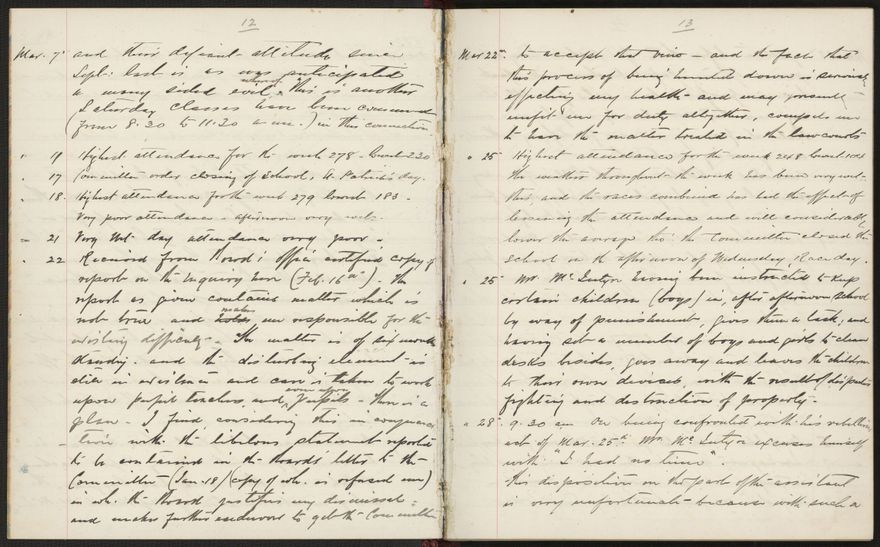 12
Mar. 7. and their defiant attitude since
Sept. last is as was anticipated
a many sided evil, whereof this is another
Saturday classes have been commenced
(from 8.30 to 11.20 a.m.) in this connection
" 11 Highest attendance for the week 278 - lowest 230
" 17 Committee order closing of School, St. Patrick's day.
" 18. Highest attendance for the week 279 lowest 183.
Very poor attendance - afternoon very wet.
" 21 Very wet day attendance very poor.
" 22 Received from Board's office certified copy of
report on the inquiry here (Feb. 16th). The
report as given contains matter which is
not true and makes me responsible for the
existing difficulty. The matter is of six months
standing and the disturbing element is
still in existence and care is taken to work
upon pupil teachers and even upon pupils - there is a
plan. I find, considering this in conjunction
with the libelous statement reported
to be contained in the Board's letter to the
Committee (Jan. 18) (copy of wh. is refused me)
in wh. the Board justifies my dismissal
and makes further endeavour to get the Committee
13
Mar 22nd. to accept that view - and the fact that
this process of being hounded down is seriously
affecting my health and may
unfit me for duty altogether, compels me
to have the matter tried in the law courts
" 25 Highest attendance for the week 248 lowest
The weather throughout the week has been very wet
this, and the races combined has had the effect of
lessening the attendance and will considerably
lower the average tho' the Committee closed the
School on the afternoon of Wednesday, Race day.
" 25 Mr. McIntyre having been instructed to keep
certain children (boys) in, after afternoon school
by way of punishment, gives them a task, and
having set a number of boys and girls to clean
desks besides, goes away and leaves the children
to their own devices, with the result of disputes
fighting and destruction of property.
" 28. 9.30 am On being confronted with his rebellious
act of Mar. 25th Mr. McIntyre excuses himself
with "I had no time".
This disposition on the part of the assistant
is very unfortunate because with such a